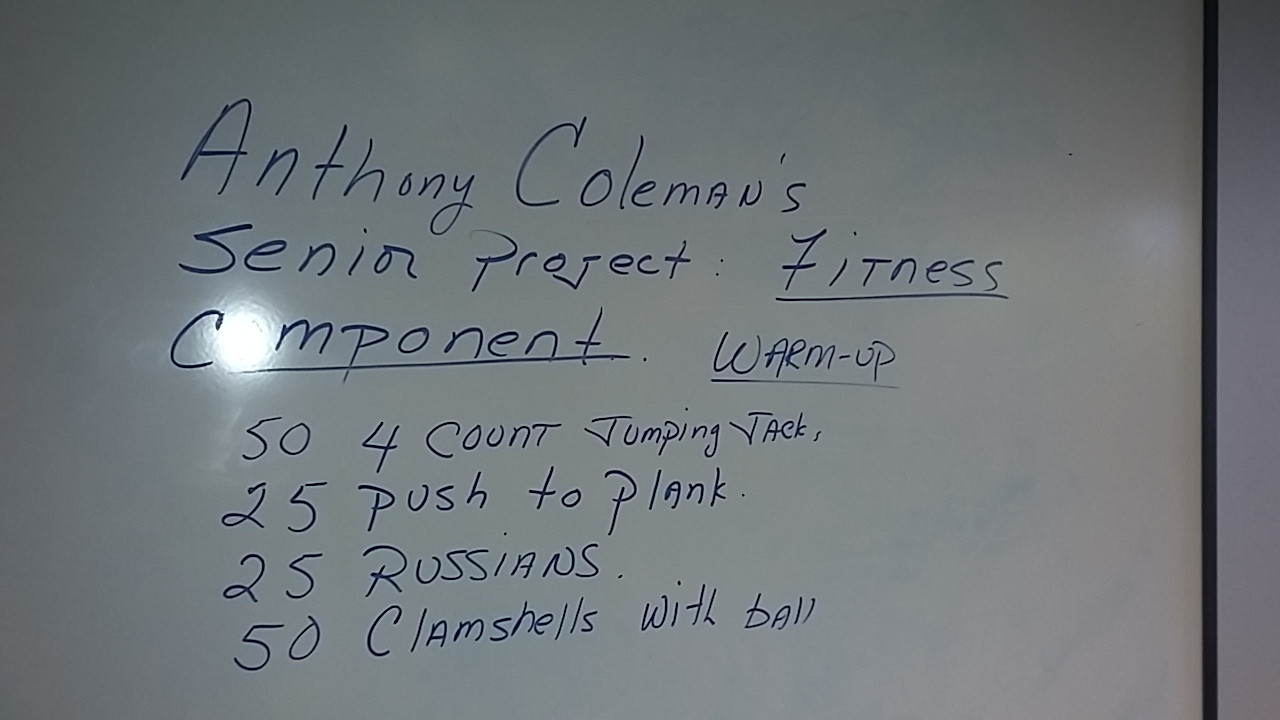 Anthony Coleman's
Senior Project: Fitness
Component. Warm-up
50 4 Count Jumping Jack,
25 Push to Plank.
25 Russians.
50 Clamshells with ball